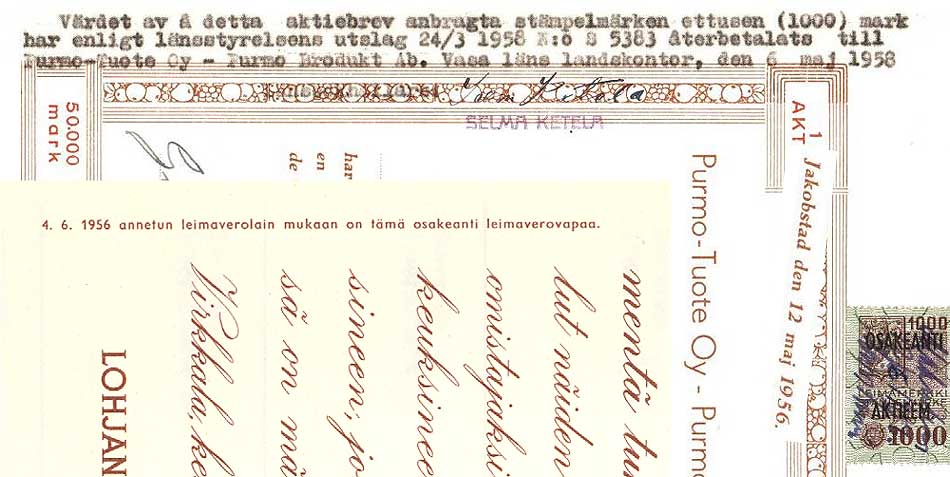 Värdet av å detta aktiebrev anbragta stämpelmärken ettusen (1000) mark
har enligt länsstyrelsens utslag 24/3 1958 N:o S 5383 återbetalats till
Purmo-Tuote Oy - Purmo Produkt Ab. Vasa läns landskontor, den 6 maj 1958
SELMA KETELA
50.000
mark
har
en
de
1
AKT
Jakobstad den 12 maj 1956.
Purmo-Tuote Oy - Purmo
4. 6. 1956 annetun leimaverolain mukaan on tämä osakeanti leimaverovapaa.
menta tur
lut näiden
omistajaksi
keuksinee
sineen, jo
sä on mä
Virkkala, ke
LOHJAN
1000
OSAKEANTI
AKTIEEM.
1000